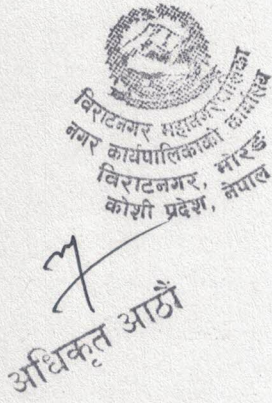 विराटनगर महानगरपालिका
नगर कार्यपालिकाको कार्यालय
विराटनगर, मोरङ
कोशी प्रदेश, नेपाल
अधिकृत आठौं